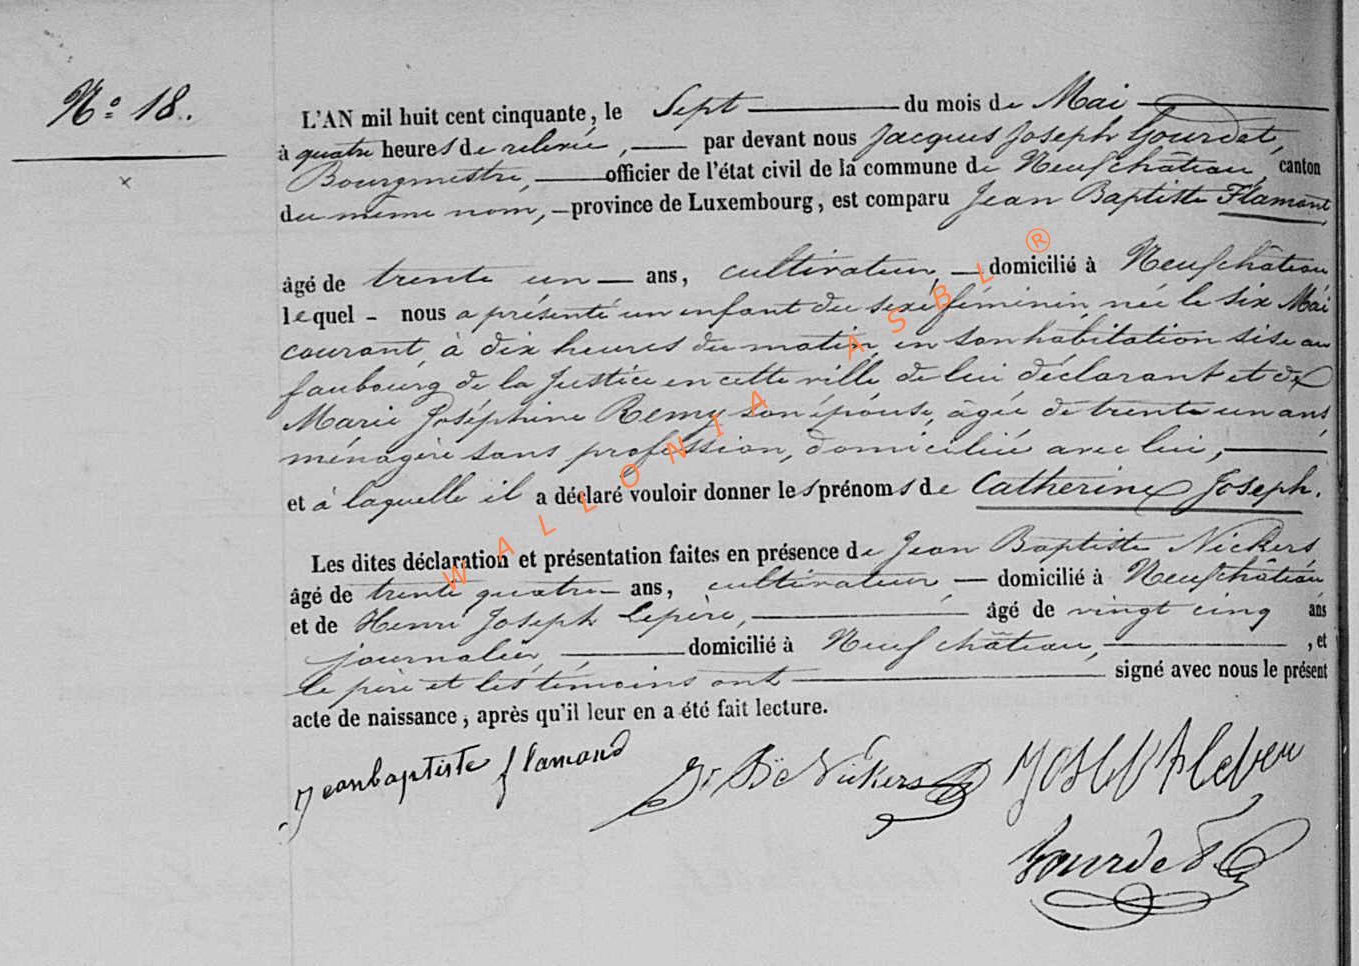 N.° 18.
L'AN mil huit cent cinquante, le Sept du mois de Mai
à quatre heures de relevée, par devant nous Jacques Joseph Gourdet,
Bourgmestre, officier de l'état civil de la commune de Neufchâteau, canton
du même nom, province de Luxembourg, est comparu Jean Baptiste Flamant,
âgé de trente un ans, cultivateur, domicilié à Neufchâteau
lequel nous a présenté un enfant du sexe féminin, née le six Mai
courant, à dix heures du matin, en son habitation sise au
faubourg de la Justice en cette ville de lui déclarant et de
Marie Joséphine Remy son épouse, âgée de trente un ans,
ménagère sans profession, domiciliée avec lui,
et à laquelle il a déclaré vouloir donner les prénoms de Catherine Joseph.
Les dites déclaration et présentation faites en présence de Jean Baptiste Nickers
âgé de trente quatre ans, cultivateur, domicilié à Neufchâteau
et de Henri Joseph Lepère, âgé de vingt cinq ans
journalier, domicilié à Neufchâteau, , et
le père et les témoins ont signé avec nous le présent
acte de naissance, après qu'il leur en a été fait lecture.
Jeanbaptiste flamand
J. Bte Nickers
Gourdet
WALLONIA ASBL ®